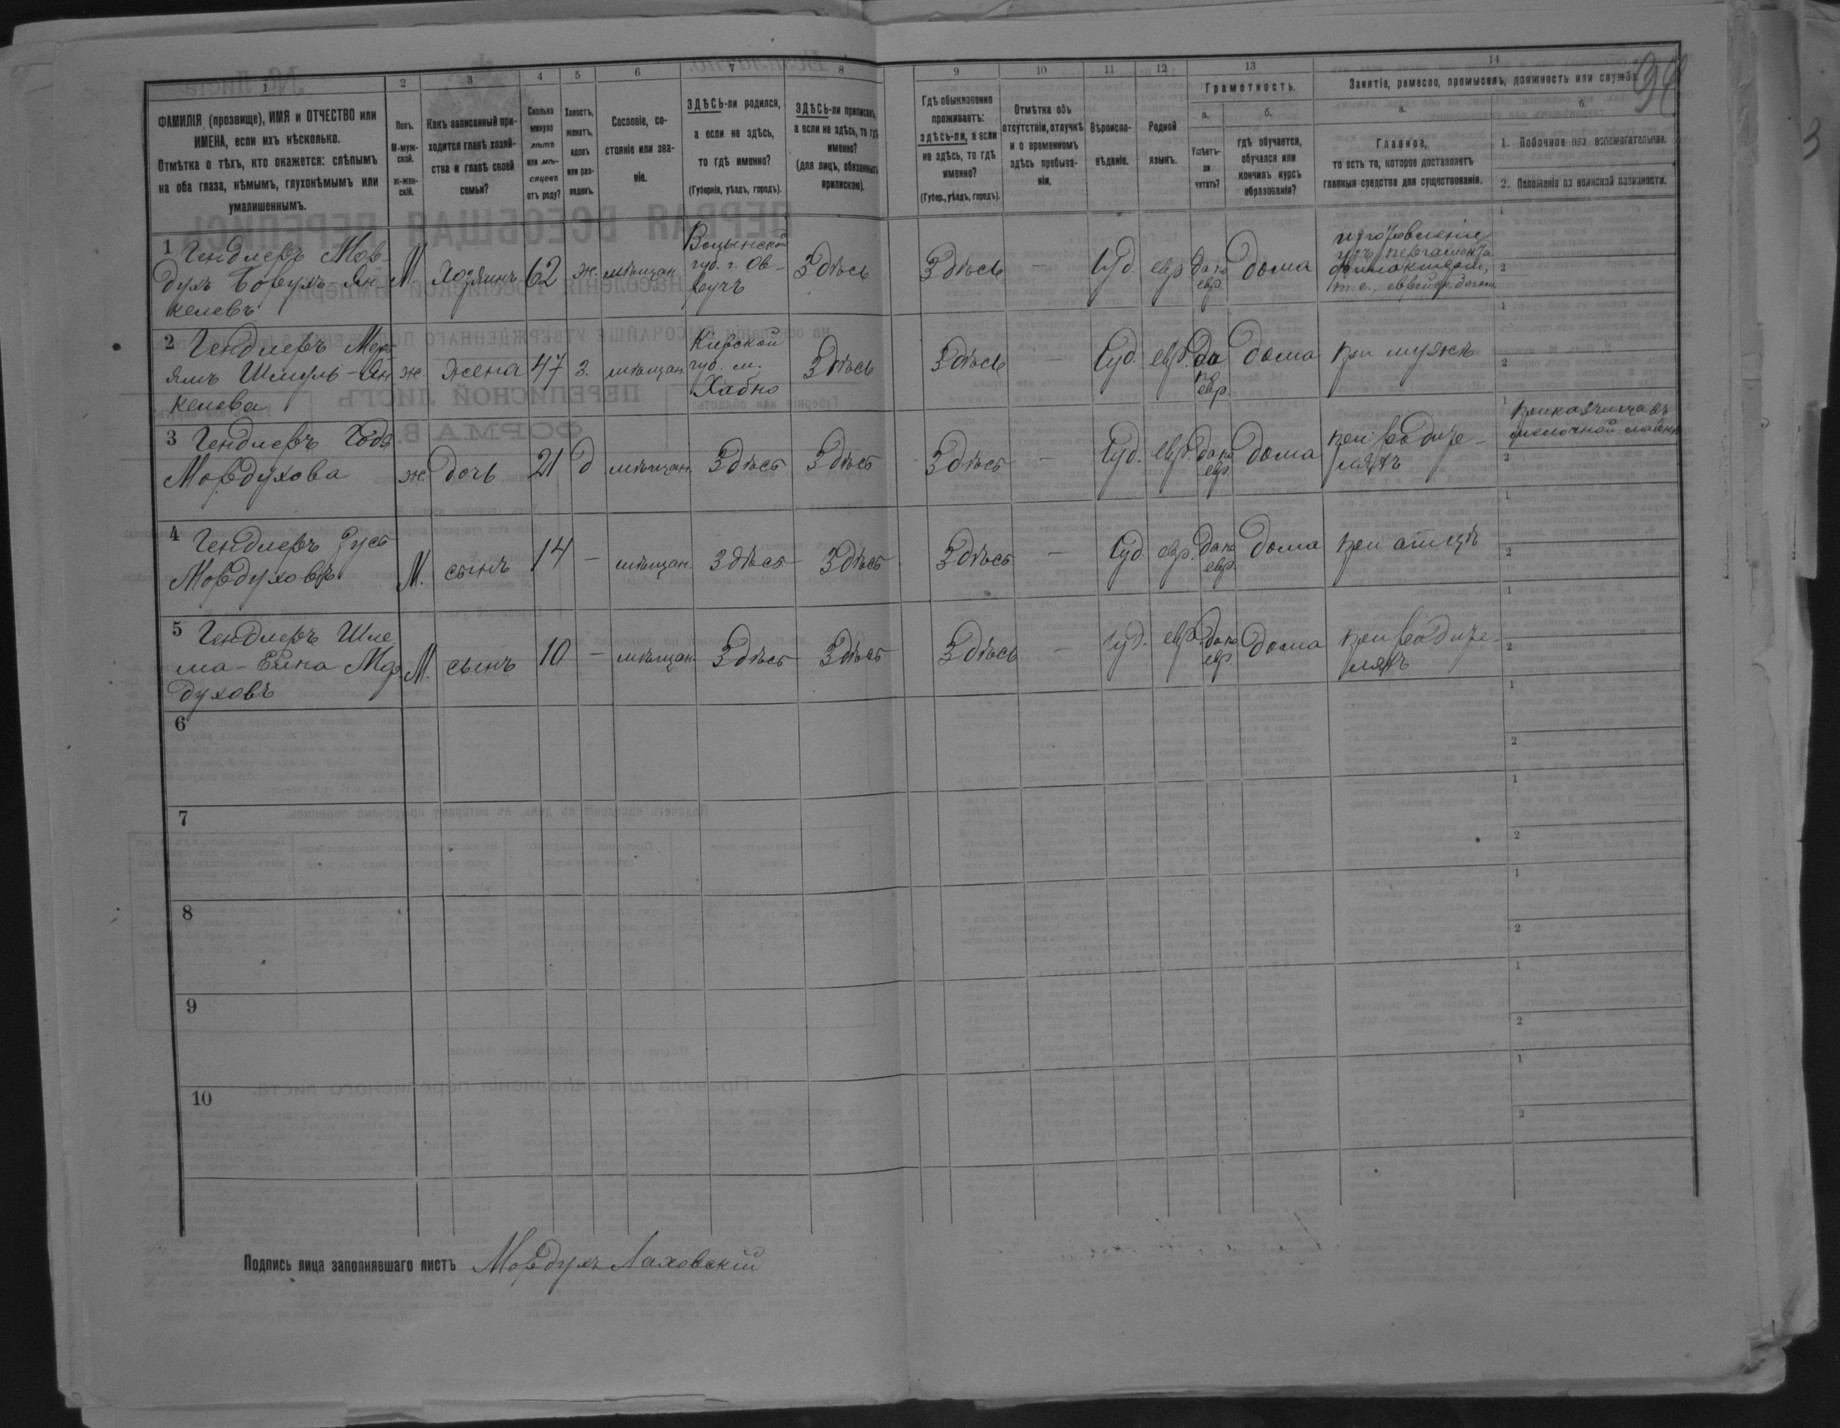 94
1 2 3 4 5 6 7 8 9 10 11 12 13 14
ФАМИЛІЯ (прозвище), ИМЯ и ОТЧЕСТВО или
ИМЕНА, если ихъ нѣсколько.
Отмѣтка о тѣхъ, кто окажется: слѣпымъ
на оба глаза, нѣмымъ, глухонѣмымъ или
умалишеннымъ.
Полъ.
М-муж-
ской.
Ж-жен-
скій.
Какъ записанный при-
ходится главѣ хозяй-
ства и главѣ своей
семьи?
Сколько
минуло
лѣтъ
или мѣ-
сяцевъ
отъ роду?
Холостъ,
женатъ,
вдовъ
или раз-
веденъ.
Сословіе, со-
стояніе или зва-
ніе.
ЗДѢСЬ-ли родился,
а если не здѣсь,
то гдѣ именно?
(Губернія, уѣздъ, городъ).
ЗДѢСЬ-ли приписанъ,
а если не здѣсь, то гдѣ
именно?
(для лицъ, обязанныхъ
припиской).
Гдѣ обыкновенно
проживаетъ:
здѣсь-ли, а если
не здѣсь, то гдѣ
именно?
(Губер., уѣздъ, городъ).
Отмѣтка объ
отсутствіи, отлучкѣ
и о временномъ
здѣсь пребыва-
ніи.
Вѣроиспо-
вѣданіе.
Родной
языкъ.
Грамотность.
а.
Умѣетъ-
ли
читать?
б.
гдѣ обучается,
обучался или
кончилъ курсъ
образованія?
Занятіе, ремесло, промыселъ, должность или служба.
а.
Главное,
то есть то, которое доставляетъ
главныя средства для существованія.
б.
1. Побочное или вспомогательное.
2. Положеніе по воинской повинности.
1 Гендлеръ Мор-
духъ Борухъ Ян-
келевъ
М. Хозяинъ 62 ж. мѣщан.
Волынской
губ. г. Ов-
ручъ
Здѣсь Здѣсь — Іуд. евр. да по
евр. Дома
2 Гендлеръ
Шмуль-Ян
келева
ж Жена 47 з. мѣщан.
Кіевской
губ. м.
Хабно
Здѣсь Здѣсь — Іуд. евр. да
по
евр. Дома при мужѣ
3 Гендлеръ Ходя
Мордухова
ж. дочь 21 д мѣщан. Здѣсь Здѣсь Здѣсь — Іуд. евр. да по
евр. Дома при родите-
ляхъ
мелочной лавкѣ
4 Гендлеръ Зусь
Мордуховъ
М. сынъ 14 — мѣщан. Здѣсь Здѣсь Здѣсь — Іуд. евр. да по
евр. Дома при отцѣ
5 Гендлеръ Шле
ма- Мор
духовъ
М. сынъ 10 — мѣщан. Здѣсь Здѣсь Здѣсь — Іуд. евр. да по
евр Дома при родите-
ляхъ
6
7
8
9
10
Подпись лица заполнявшаго листъ Мордухъ Лаховскій